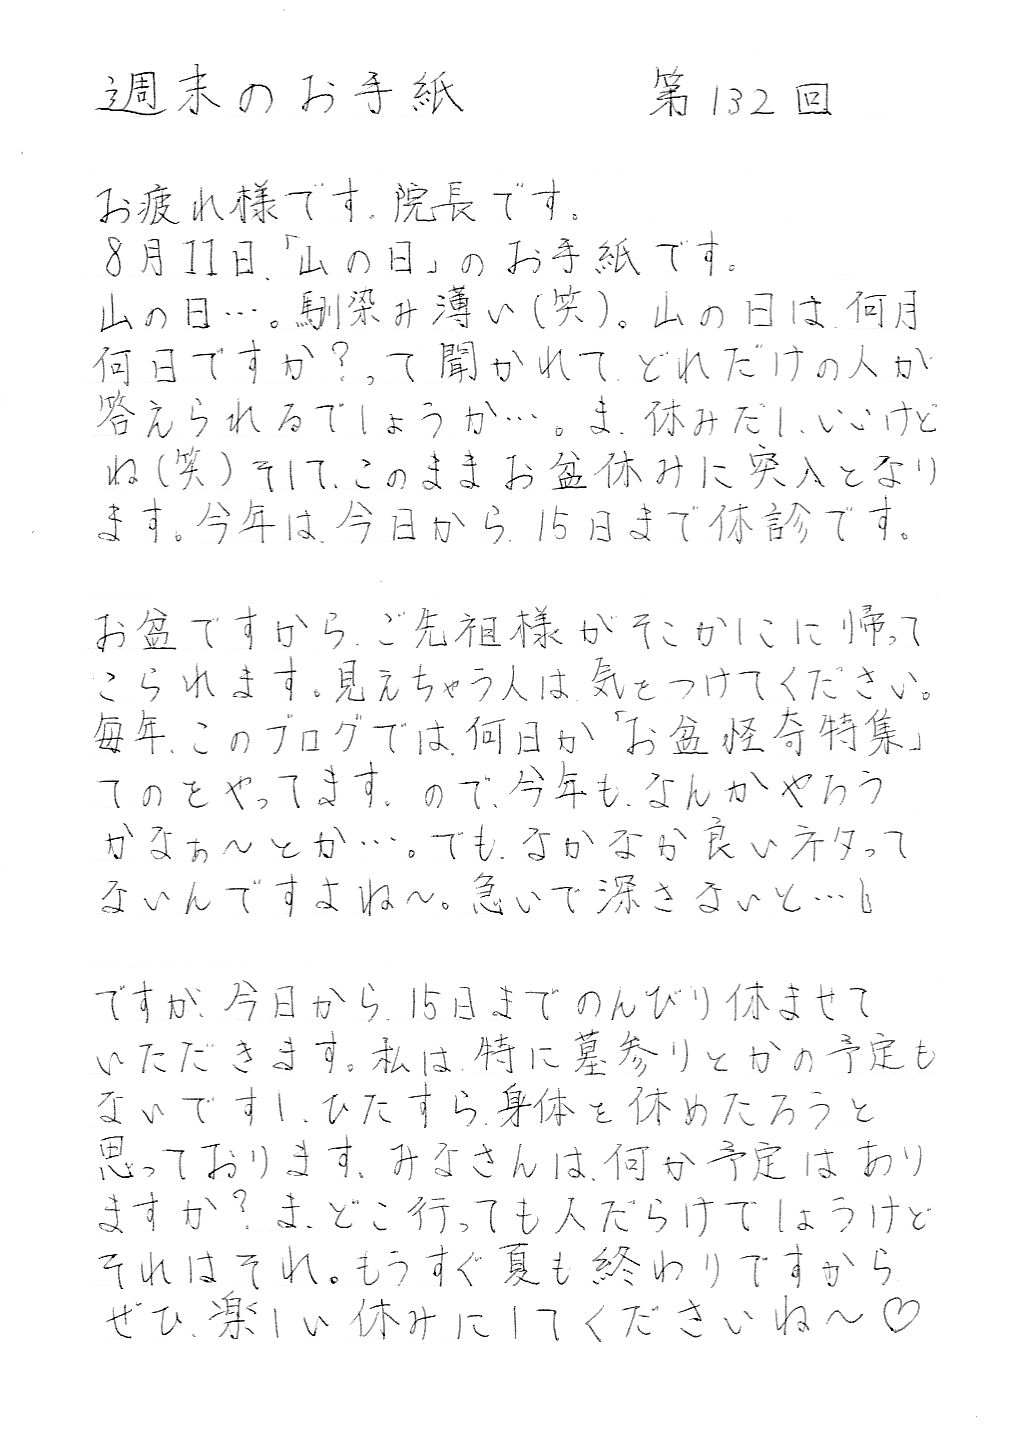 週末のお手紙　第132回
お疲れ様です。院長です。
8月11日、「山の日」のお手紙です。
山の日…。馴染み薄い(笑)。山の日は、何月
何日ですか？って聞かれて、どれだけの人が
答えられるでしょうか…。ま、休みだし、いいけど
ね(笑)そして、このままお盆休みに突入となり
ます。今年は、今日から、15日まで休診です。
お盆ですから、ご先祖様がそこかしこに帰って
こられます。見えちゃう人は、気をつけてください。
毎年、このブログでは、何日か「お盆怪奇特集」
てのをやってます、ので、今年も、なんかやろう
かなぁ〜とか…。でも、なかなか良いネタって
ないんですよね〜。急いで深さないと…
ですが、今日から、15日までのんびり休ませて
いただきます。私は、特に墓参りとかの予定も
ないですし、ひたすら、身体を休めたろうと
思っております、みなさんは、何か予定はあり
ますか？ま、どこ行っても人だらけでしょうけど
それはそれ。もうすぐ夏も終わりですから
ぜひ、楽しい休みにしてくださいね〜♡